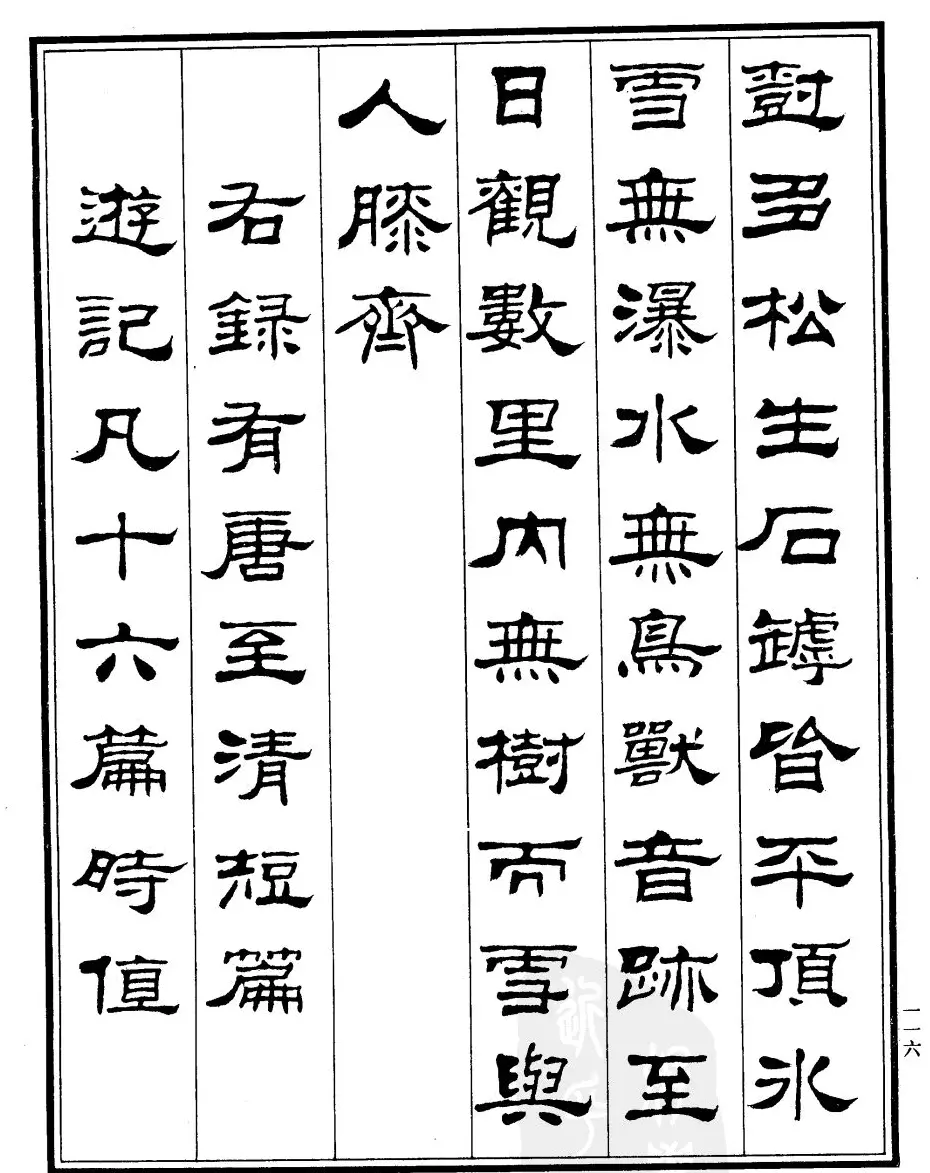 樹多松生石罅皆平頂冰
雪無瀑水無鳥獸音跡至
日觀數里內無樹而雪與
人膝齊
右録有唐至清短篇
遊記凡十六篇時值
一一六